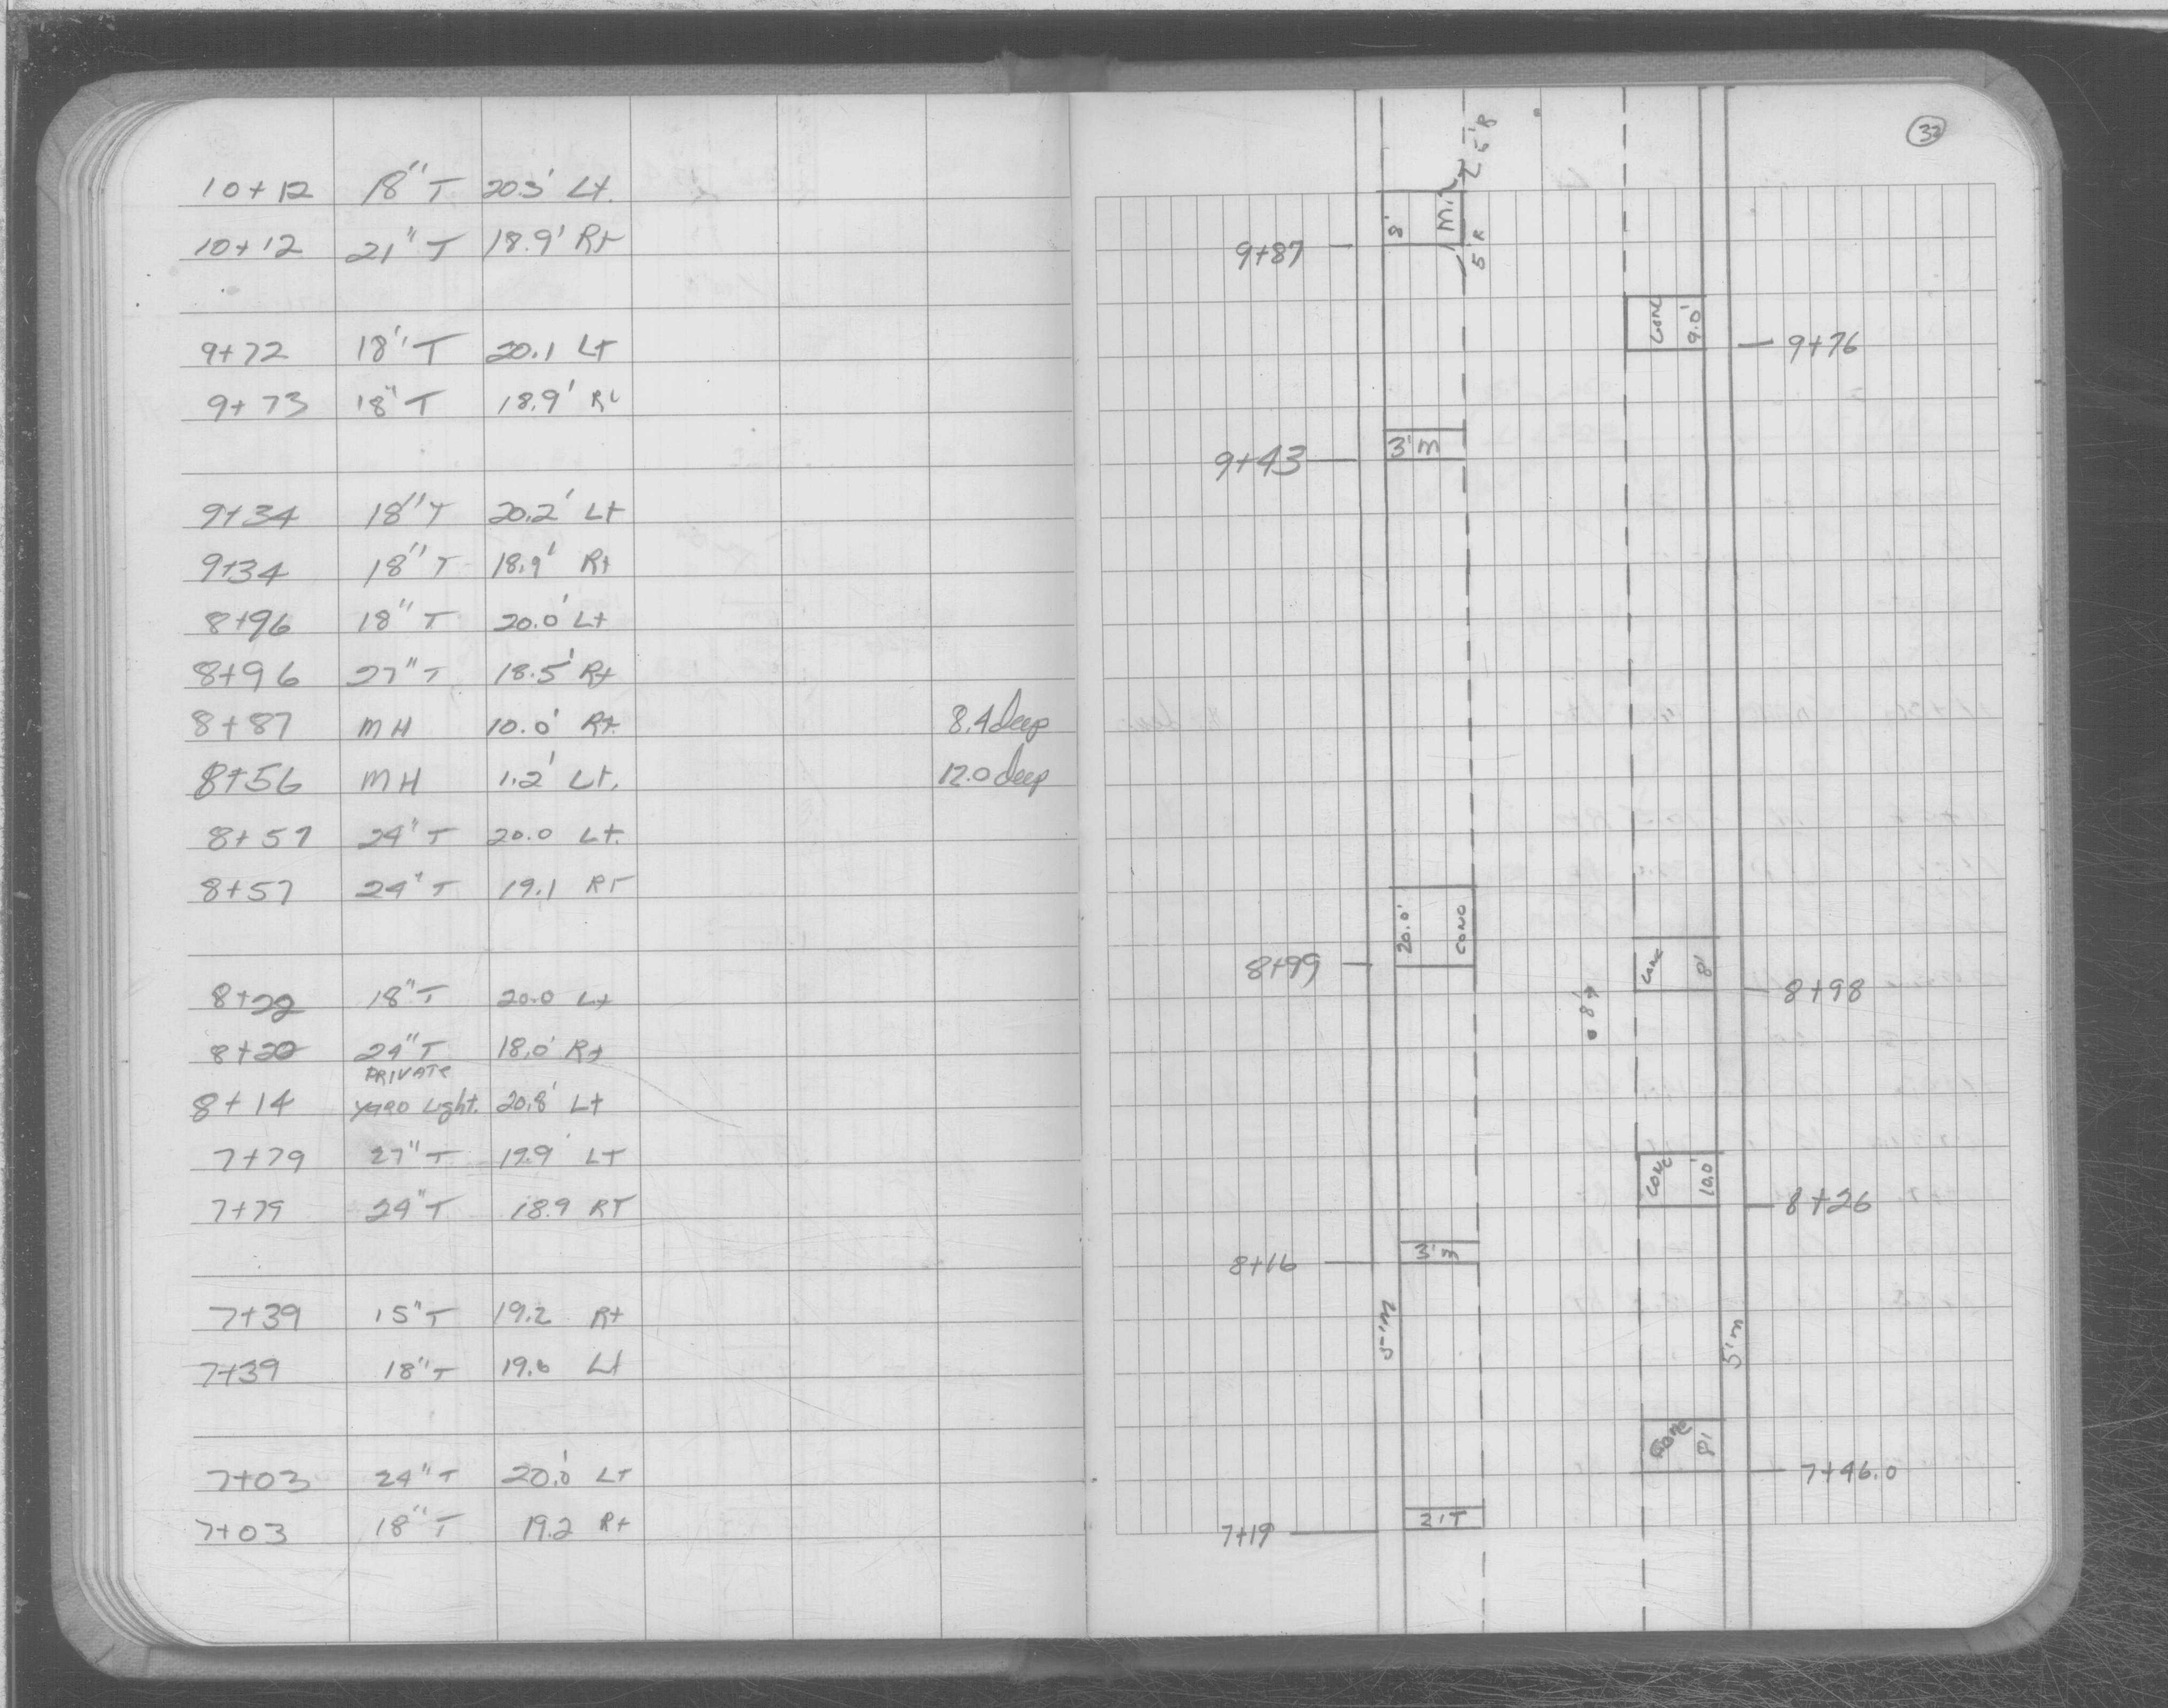 10+12 18" T 20.3' Lt.
10+12 21" T 18.9' Rt
9+72 18" T 20.1 Lt
9+73 18" T 18.9' Rt
9+34 18" T 20.2' Lt
9+34 18" T 18.9' Rt
8+96 18" T 20.0' Lt
8+96 27" T 18.5' Rt
8+87 MH 10.0' Rt. 8.4 deep
8+56 MH 1.2' Lt. 12.0 deep
8+57 24" T 20.0 Lt.
8+57 24" T 19.1 RT
8+22 18" T 20.0 Lt
8+20 24" T 18.0' Rt
PRIVATE
8+14 YARD Light. 20.8' Lt
7+79 27" T 19.9' LT
7+79 24" T 18.9 RT
7+39 15" T 19.2 Rt
7+39 18" T 19.6 Lt
7+03 24" T 20.0' LT
7+03 18" T 19.2 Rt
32
9+87 8' 5'R
CONC 9.0' 9+76
9+43 3'M
8+99 20.0' CONC
CONC 8' 8+98
CONC 10.0' 8+26
8+16 3'm
5'M 5'm
CONC 8' 7+46.0
7+19 2'T